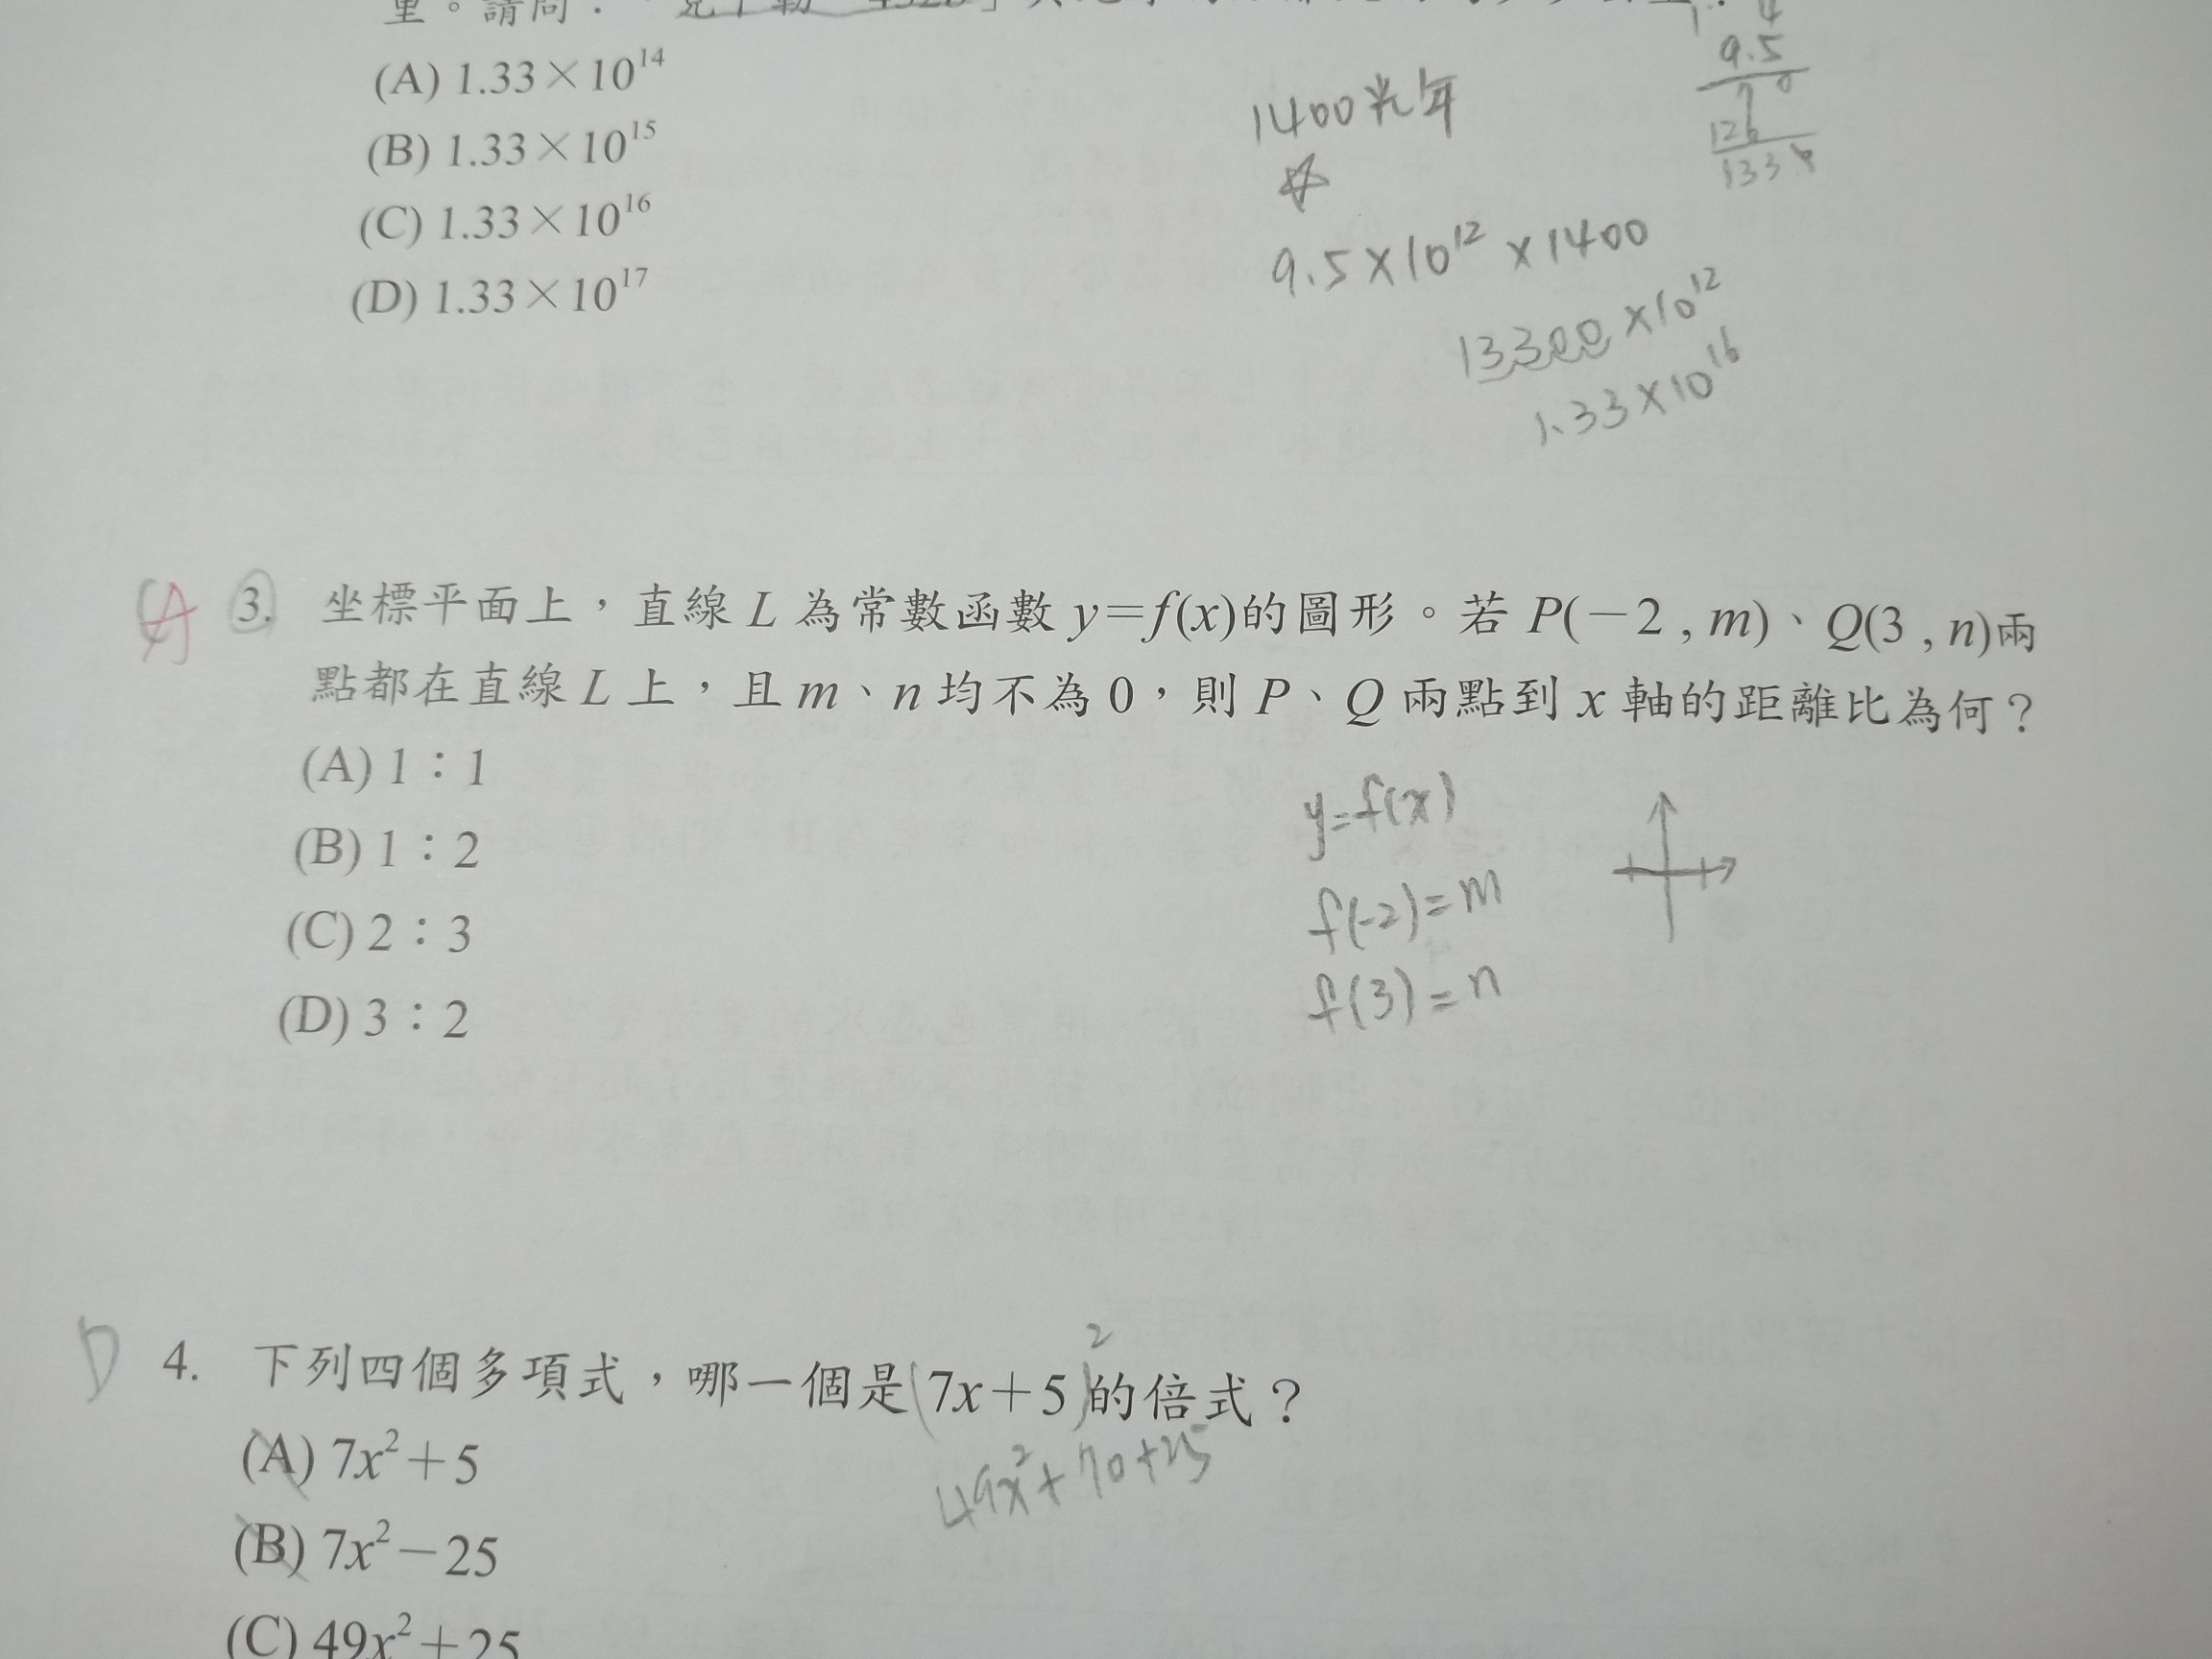 里。請問：「克卜勒
(A) 1.33×10¹⁴
(B) 1.33×10¹⁵
(C) 1.33×10¹⁶
(D) 1.33×10¹⁷
9.5
133
1400光年
9.5×10¹²×1400
13300×10¹²
1.33×10¹⁶
A 3. 坐標平面上，直線 L 為常數函數 y=f(x)的圖形。若 P(−2 , m)、Q(3 , n)兩
點都在直線 L 上，且 m、n 均不為 0，則 P、Q 兩點到 x 軸的距離比為何？
(A) 1：1
(B) 1：2
(C) 2：3
(D) 3：2
y=f(x)
f(-2)=m
f(3)=n
D 4. 下列四個多項式，哪一個是(7x+5)²的倍式？
49x²+70+25
(A) 7x²+5
(B) 7x²−25
(C) 49x²+25